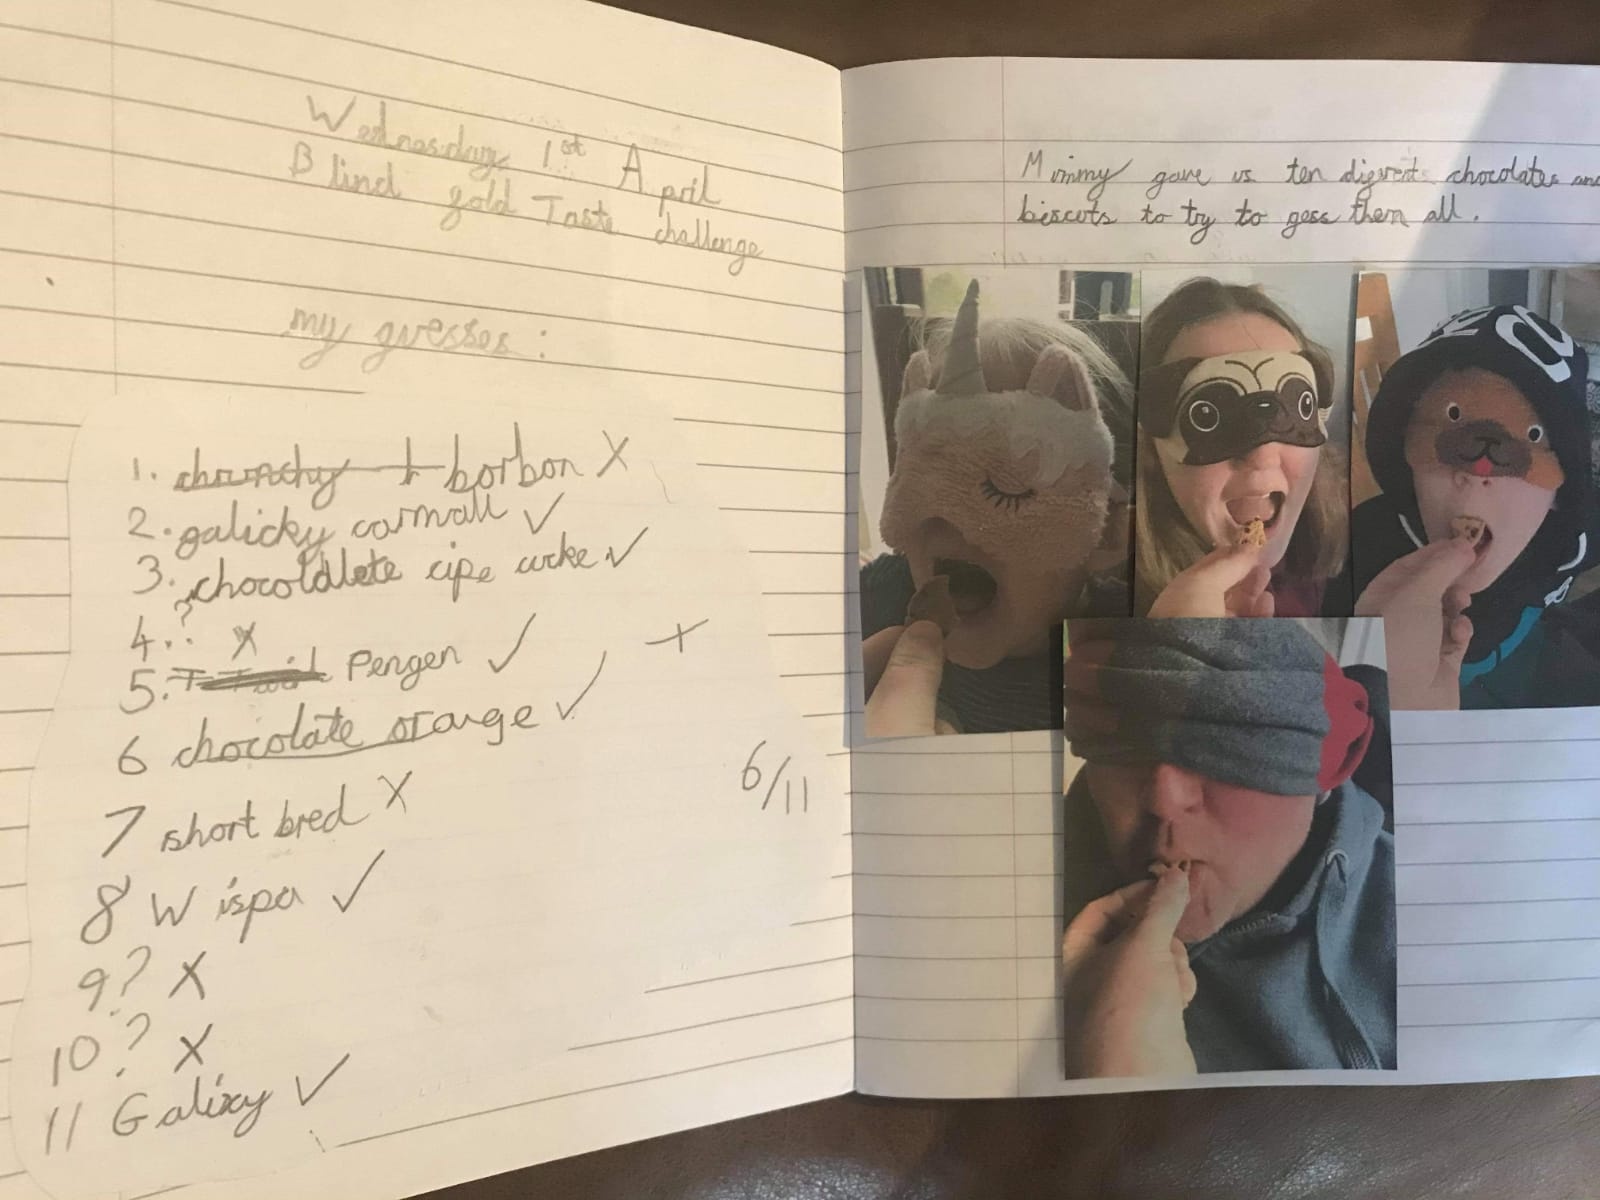 Wednesday 1st April
Blind gold Taste challenge
my guesses:
1. chrunchy borbon X
2. galicky carmall ✓
3. chocoldlete cipe ✓
4. ? X
5. Pengen ✓
6 chocolate orange ✓
7 short bred X
8 Wispa ✓
9 ? X
10 ? X
11 Galixy ✓
6/11
Mummy gave us ten chocolates and
biscuts to try to gess them all.